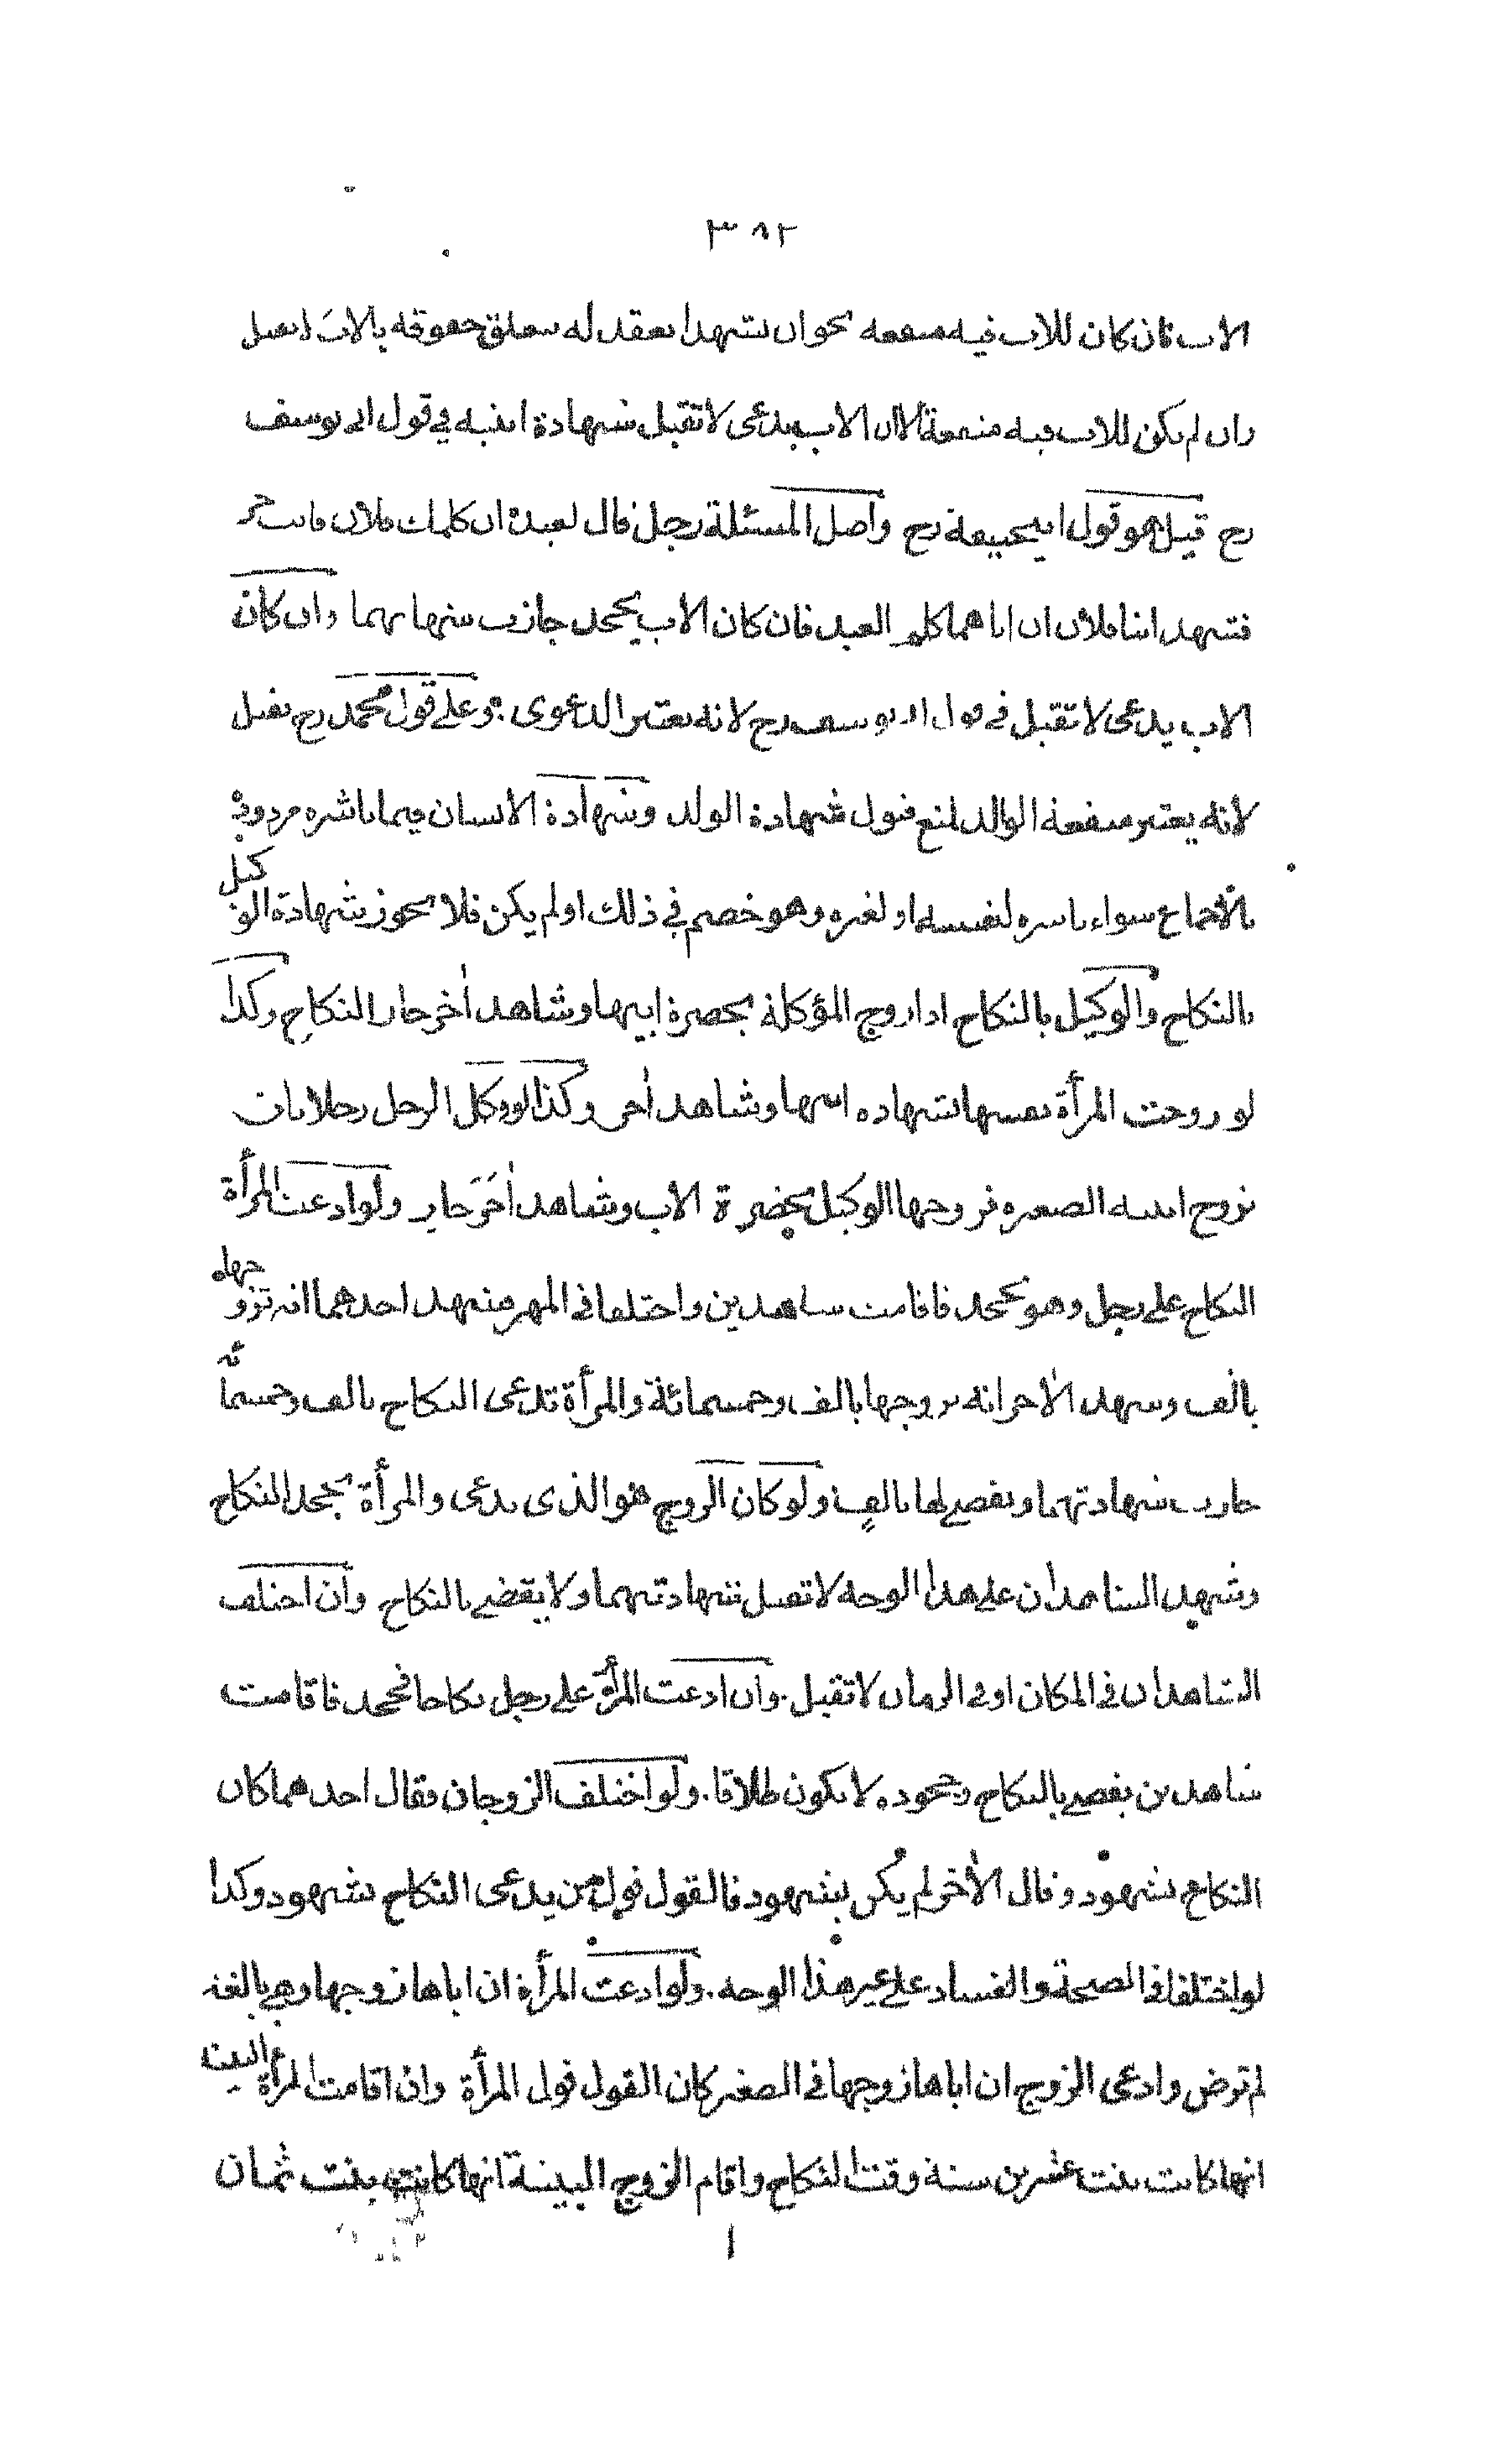 ٣٨٢
الاب فان كان للاب فيه منفعة نحو ان تشهدا بعقد له يتعلق حقوقه بالاب لا تقبل
وان لم يكن للاب فيه منفعة الا ان الاب يدعى لا تقبل شهادة ابنيه في قول ابى يوسف
رح قيل هو قول ابيحنيفة رح واصل المسئلة رجل قال لعبده ان كلمك فلان فانت حر
فشهد ابنا فلان ان اباهما كلم العبد فان كان الاب يجحد جازت شهادتهما وان كان
الاب يدعى لا تقبل في قول ابى يوسف رح لانه يعتبر الدعوى وعلى قول محمد رح تقبل
لانه يعتبر منفعة الوالد لمنع قبول شهادة الولد وشهادة الانسان فيما باشره مردودة
بالاجماع سواء باشره لنفسه او لغيره وهو خصم في ذلك او لم يكن فلا يجوز شهادة الوكيل
بالنكاح والوكيل بالنكاح اذا زوج المؤكلة بحضرة ابيها وشاهد اٰخر جاز النكاح وكذا
لو زوجت المرأة نفسها بشهادة ابيها وشاهد اٰخر وكذا لو وكل الرجل رجلا بان
يزوج ابنته الصغيرة فزوجها الوكيل بحضرة الاب وشاهد اٰخر جاز ولو ادعت المرأة
النكاح على رجل وهو يجحد فاقامت شاهدين واختلفا في المهر فشهد احدهما انه تزوجها
بالف وشهد الاٰخر انه تزوجها بالف وخمسمائة والمرأة تدعى النكاح بالف وخمسمائة
جازت شهادتهما ويقضى لها بالف ولو كان الزوج هو الذى يدعى والمرأة تجحد النكاح
وشهد الشاهدان على هذا الوجه لا تقبل شهادتهما ولا يقضى بالنكاح وان اختلف
الشاهدان في المكان او في الزمان لا تقبل وان ادعت المرأة على رجل نكاحا فجحد فاقامت
شاهدين يقضى بالنكاح وجحوده لا يكون طلاقا ولو اختلف الزوجان فقال احدهما كان
النكاح بشهود وقال الاٰخر لم يكن بشهود فالقول قول من يدعى النكاح بشهود وكذا
لو اختلفا في الصحة والفساد على غير هذا الوجه ولو ادعت المرأة ان اباها زوجها وهى بالغة
لم ترض وادعى الزوج ان اباها زوجها في الصغر كان القول قول المرأة وان اقامت المرأة البينة
انها كانت بنت عشرين سنة وقت النكاح واقام الزوج البينة انها كانت بنت ثمان